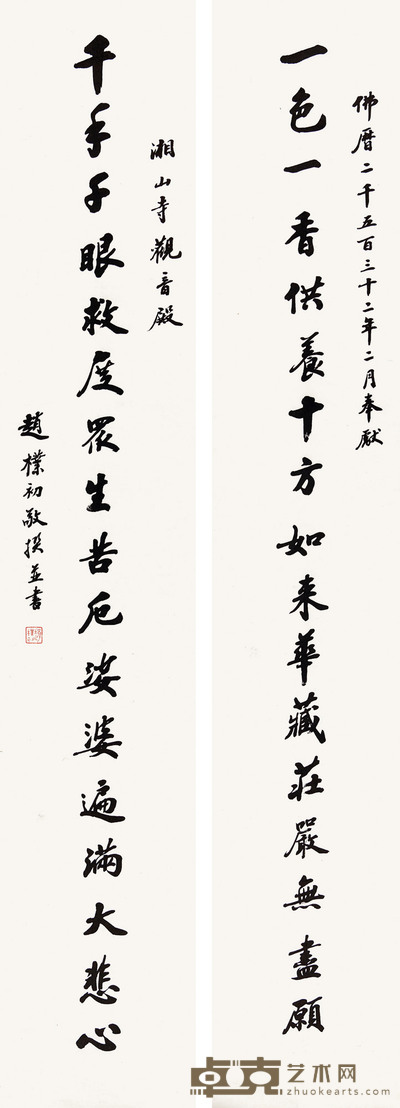 佛曆二千五百三十二年二月奉獻
一色一香供養十方如来華藏莊嚴無盡願
湘山寺觀音殿
千手千眼救度眾生苦厄娑婆遍滿大悲心
趙樸初敬撰並書
卓克艺术网
zhuokearts.com